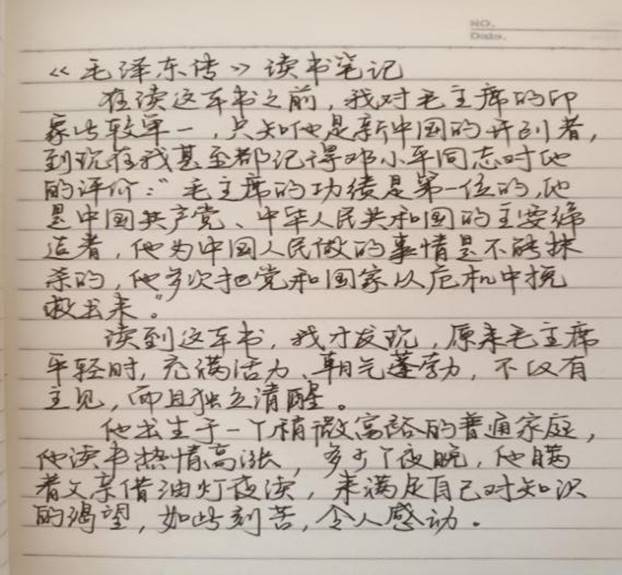 NO.
Date.
《毛泽东传》读书笔记
在读这本书之前，我对毛主席的印
象比较单一，只知他是新中国的开创者，
到现在我甚至都记得邓小平同志对他
的评价："毛主席的功绩是第一位的，他
是中国共产党、中华人民共和国的主要缔
造者，他为中国人民做的事情是不能抹
杀的，他多次把党和国家从危机中挽
救出来。"
读到这本书，我才发现，原来毛主席
年轻时，充满活力、朝气蓬勃，不仅有
主见，而且独立清醒。
他出生于一个稍微富裕的普通家庭，
他读书热情高涨，多少个夜晚，他瞒
着父亲借油灯夜读，来满足自己对知识
的渴望，如此刻苦，令人感动。